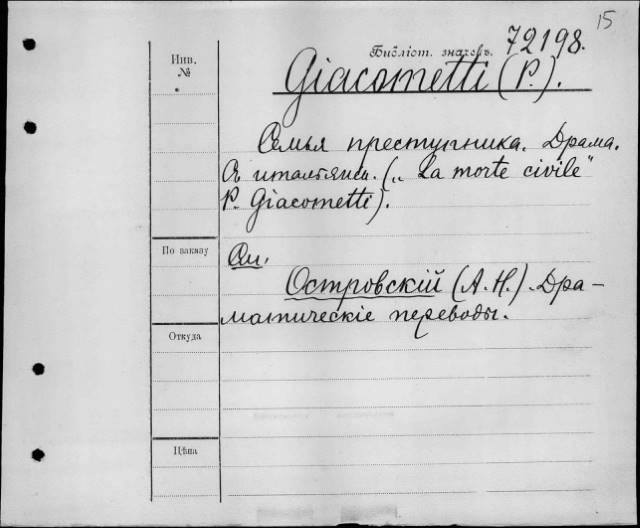 15
Библіот. знаковъ. 72198.
Инв.
№
Giacometti (P.).
Семья преступника. Драма.
Съ итальянск. („La morte civile"
P. Giacometti).
По заказу
См.
Островскій (А. Н.). Дра-
матическіе переводы.
Откуда
Цѣна